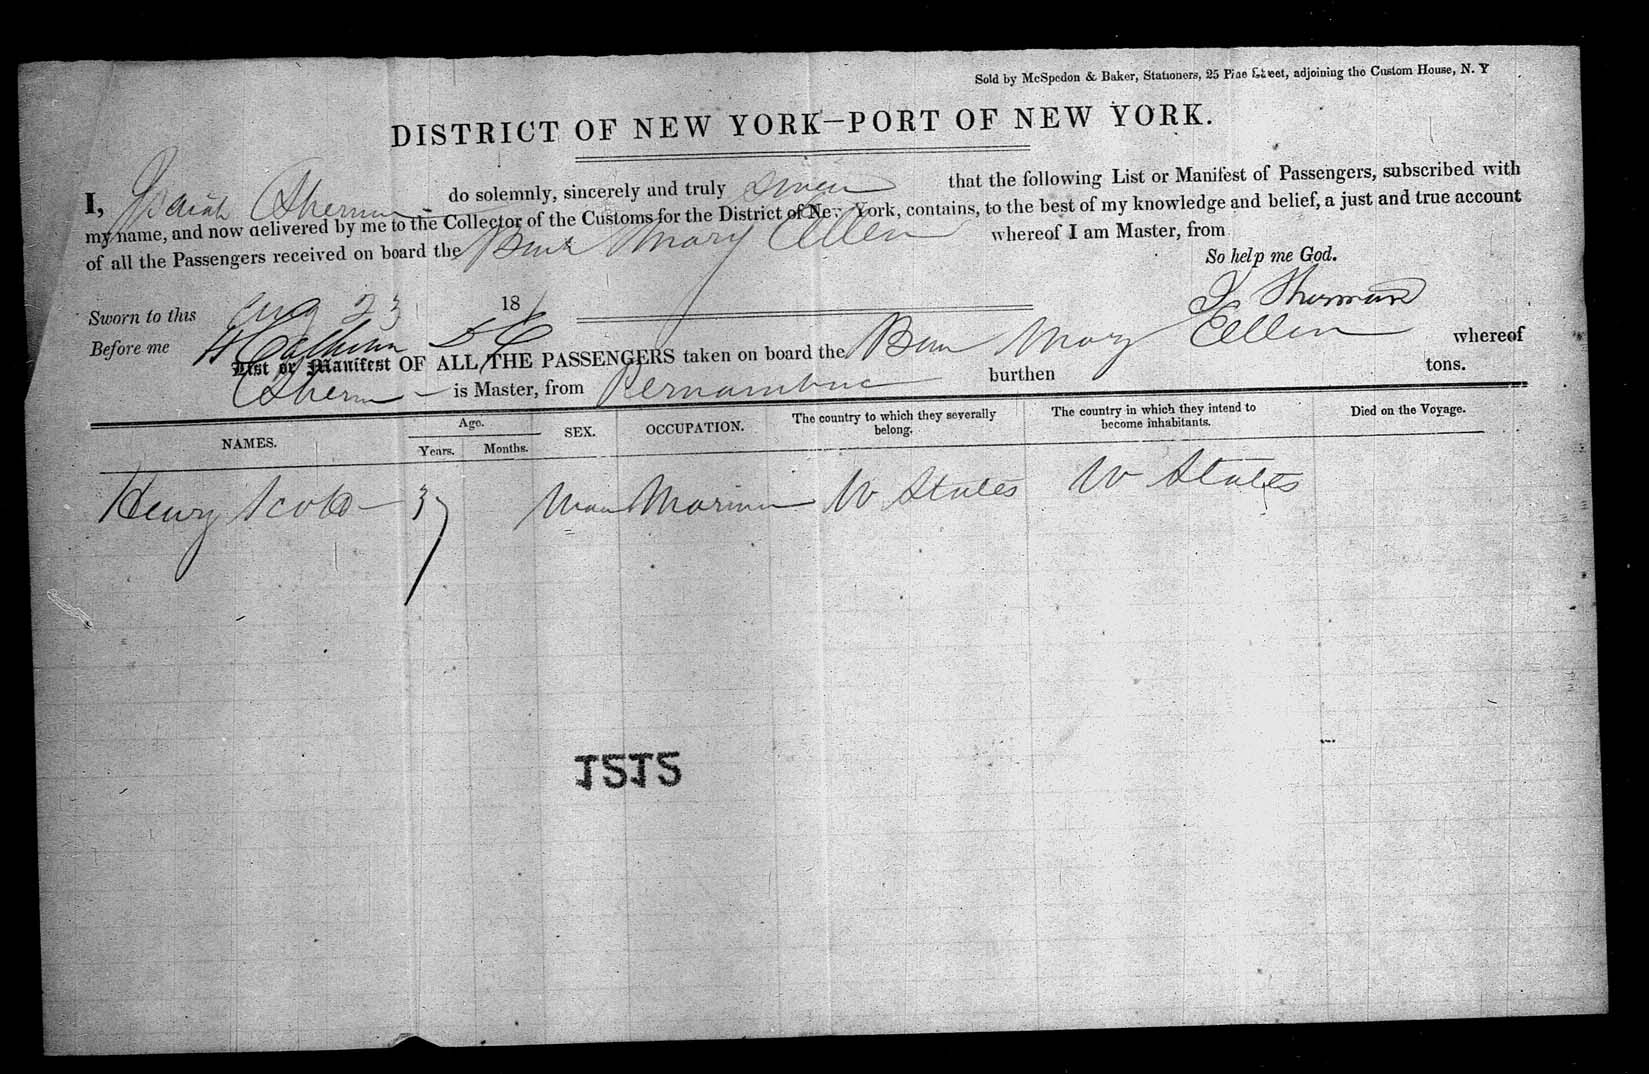 Sold by McSpedon & Baker, Stationers, 25 Pine Street, adjoining the Custom House, N. Y
DISTRICT OF NEW YORK—PORT OF NEW YORK.
I, Isaiah Sherman do solemnly, sincerely and truly swear that the following List or Manifest of Passengers, subscribed with
my name, and now delivered by me to the Collector of the Customs for the District of New York, contains, to the best of my knowledge and belief, a just and true account
of all the Passengers received on board the Mary Ellen whereof I am Master, from
So help me God.
Sworn to this Aug 23 18
I Sherman
Before me
List or Manifest OF ALL THE PASSENGERS taken on board the Mary Ellen whereof
Sherman is Master, from Pernambuc burthen tons.
NAMES. Age. Years. Months. SEX. OCCUPATION. The country to which they severally belong. The country in which they intend to become inhabitants. Died on the Voyage.
Henry Scott 37 Man Mariner U States U States
1515